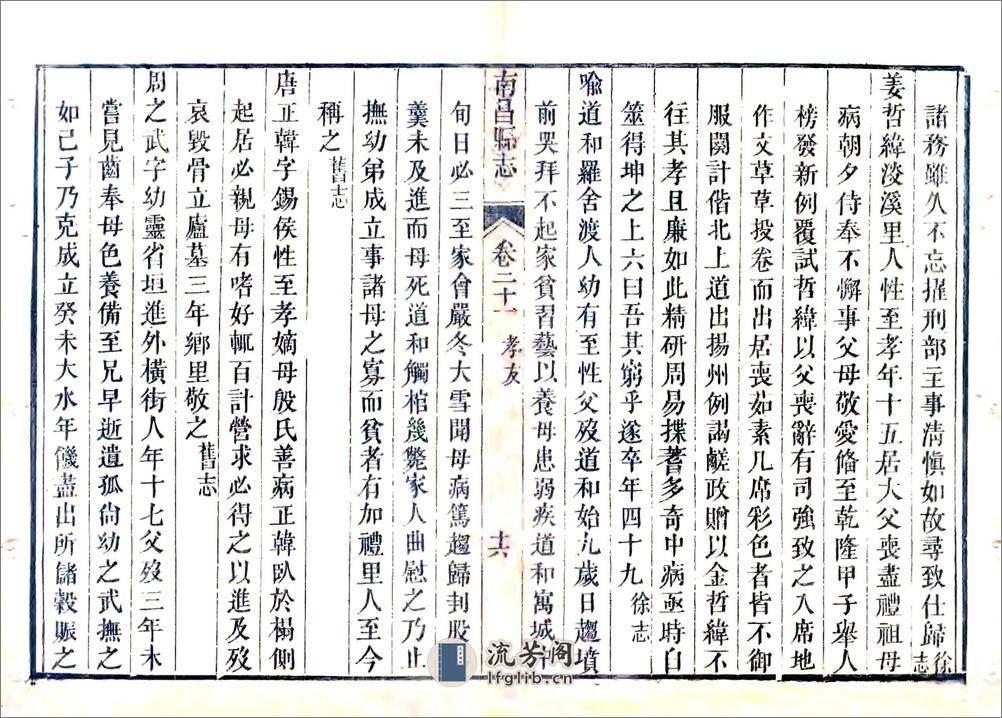 諸務雖久不忘擢刑部主事清愼如故尋致仕歸徐志
姜哲緯淡溪里人性至孝年十五居大父喪盡禮祖母
病朝夕侍奉不懈事父母敬愛偹至乾隆甲子舉人
榜發新例覆試哲緯以父喪辭有司強致之入席地
作文草草投卷而出居喪茹素几席彩色者皆不御
服闋計偕北上道出揚州例謁鹺政贈以金哲緯不
往其孝且廉如此精研周易揲蓍多奇中病亟時自
筮得坤之上六曰吾其窮乎遂卒年四十九徐志
喩道和羅舍渡人幼有至性父歿道和始九歲日趨墳
前哭拜不起家貧習藝以養母患弱疾道和寓城中
南昌縣志
卷二十
孝友
十六
旬日必三至家會嚴冬大雪聞母病篤趨歸刲股
羹未及進而母死道和觸棺幾斃家人曲慰之乃止
撫幼弟成立事諸母之寡而貧者有加禮里人至今
稱之舊志
唐正韓字錫侯性至孝嫡母殷氏善病正韓臥於榻側
起居必親母有嗜好輒百計營求必得之以進及歿
哀毀骨立廬墓三年鄉里敬之舊志
周之武字幼靈省垣進外橫街人年十七父歿三年未
嘗見齒奉母色養備至兄早逝遺孤尙幼之武撫之
如己子乃克成立癸未大水年饑盡出所儲穀賑之
流芳阁
lfglib.cn